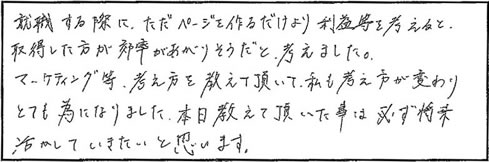 就職する際に、ただページを作るだけより利益等を考えると、
取得した方が効率があがりそうだと、考えました。
マーケティング等、考え方を教えて頂いて、私も考え方が変わり
とても為になりました。本日教えて頂いた事は必ず将来
活かしていきたいと思います。